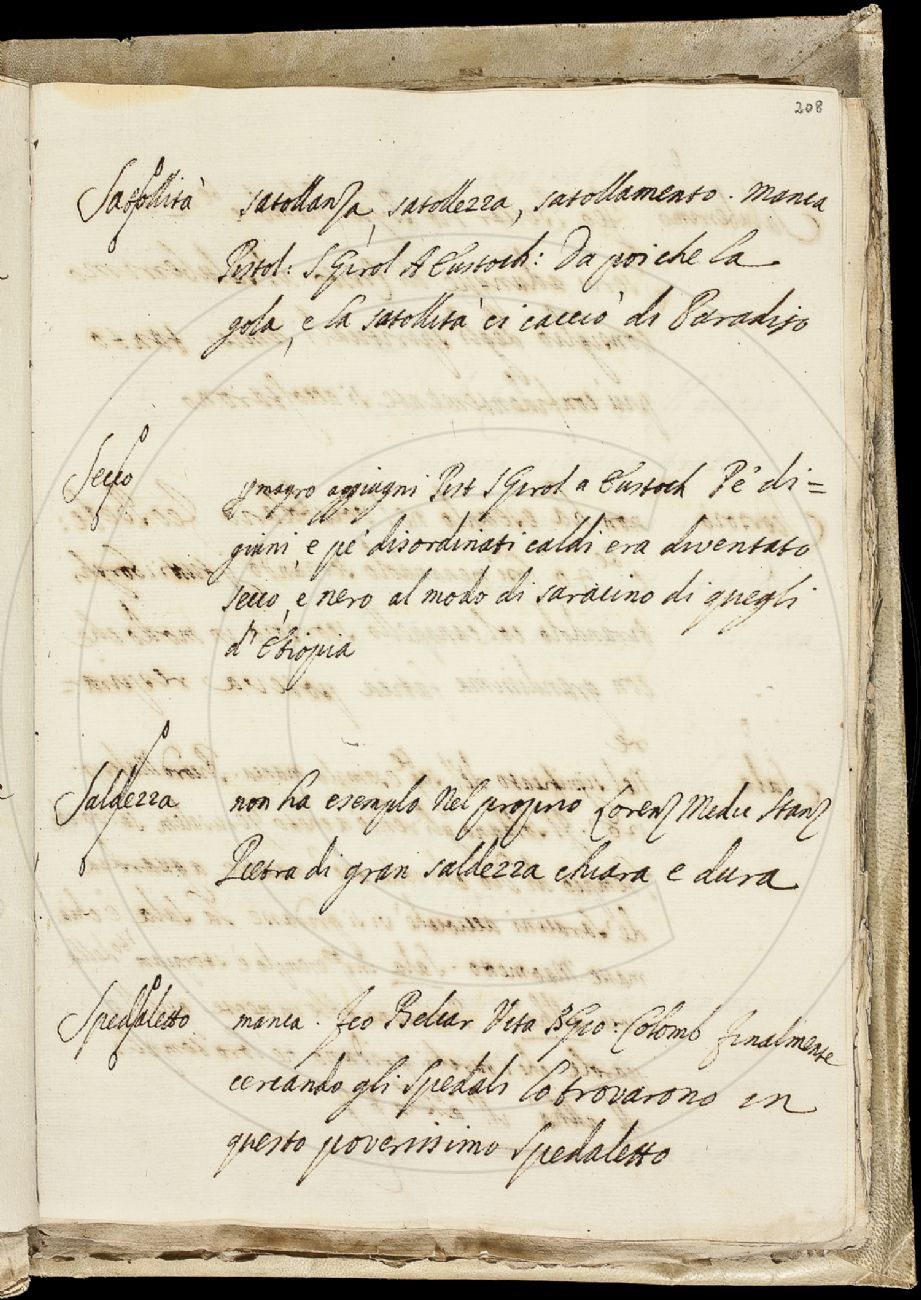 208
Satollità satollanza, satollezza, satollamento. manca
Pistol: S. Girol A Eustoch: Da poi che la
gola, e la satollità ci cacciò di Paradiso
Secco magro aggiugni Pist S Girol a Eustoch Pe' di=
giuni e pe' disordinati caldi era diventato
secco, e nero al modo di saracino di quegli
d'Etiopia
Saldezza non ha esemplo nel proprio Lorenz Medic Stanz
Pietra di gran saldezza chiara e dura
Spedaletto manca. Feo Belcar Vita B Gio: Colomb finalmente
cercando gli spedali lo trovarono in
questo poverissimo spedaletto